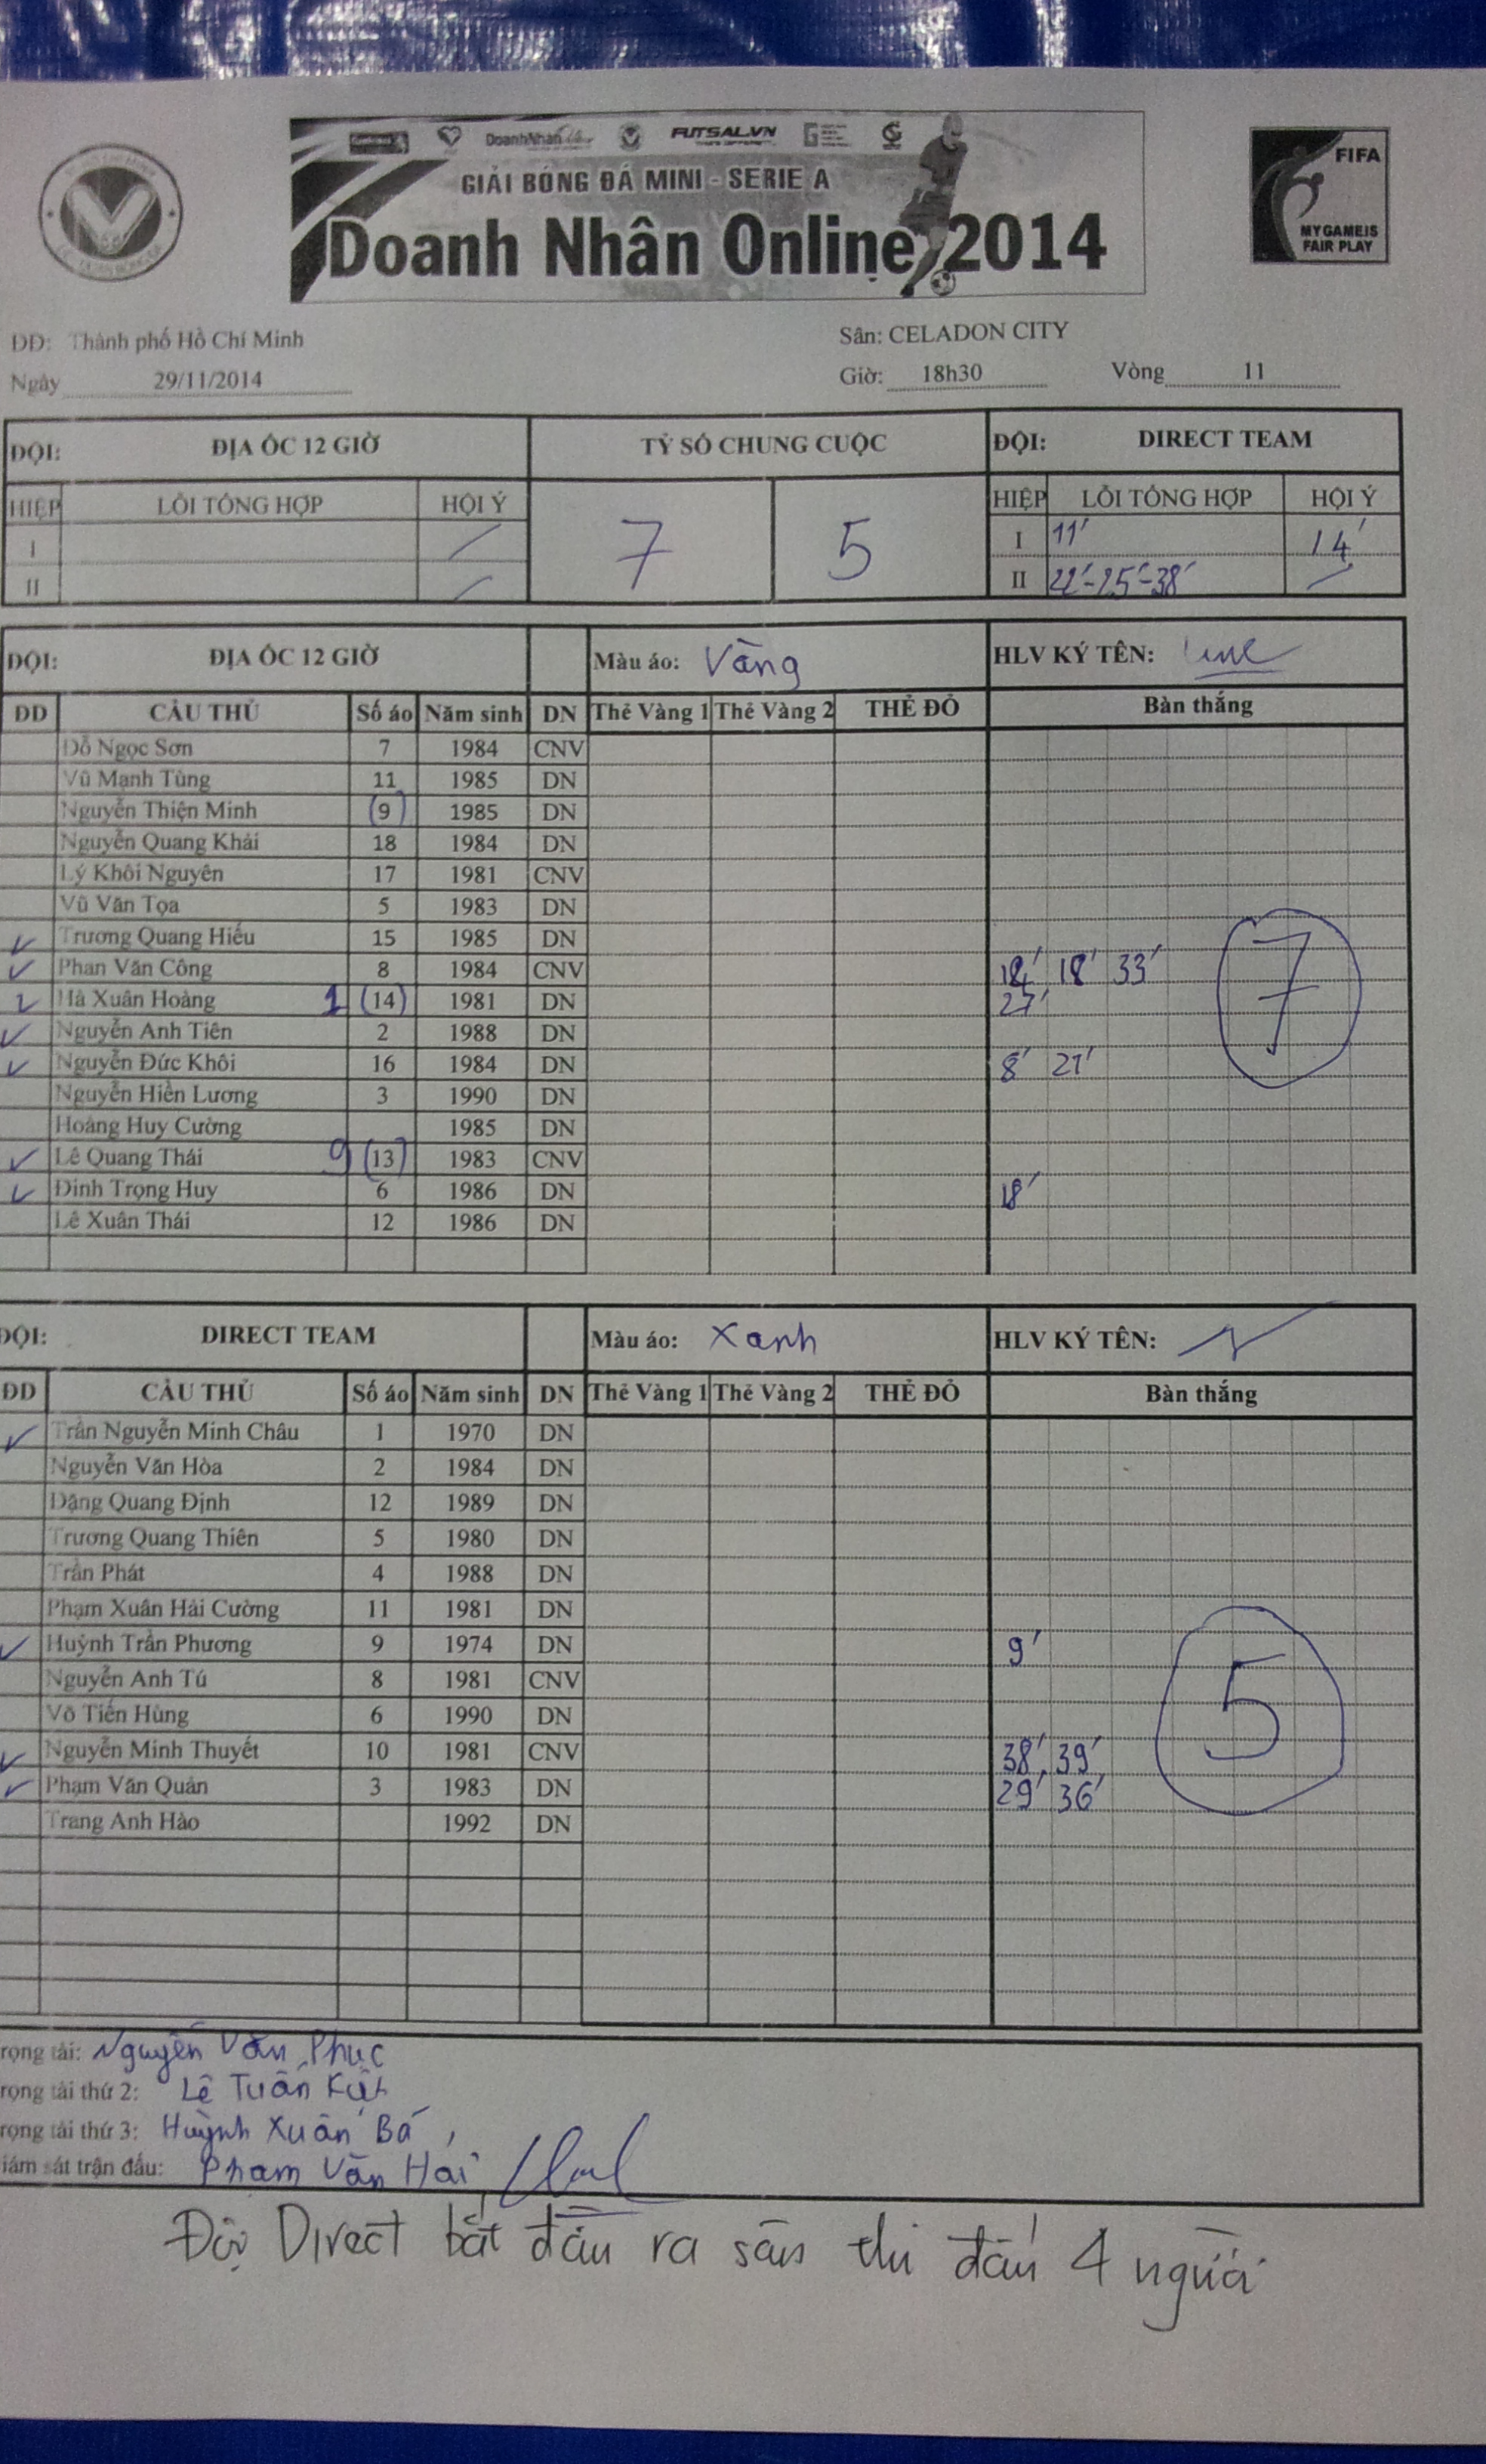 DoanhNhân Online FUTSAL.VN
GIẢI BÓNG ĐÁ MINI - SERIE A
Doanh Nhân Online 2014
FIFA
MY GAME IS
FAIR PLAY
ĐĐ: Thành phố Hồ Chí Minh Sân: CELADON CITY
Ngày 29/11/2014 Giờ: 18h30 Vòng 11
ĐỘI: ĐỊA ỐC 12 GIỜ TỶ SỐ CHUNG CUỘC ĐỘI: DIRECT TEAM
HIỆP LỖI TỔNG HỢP HỘI Ý 7 5 HIỆP LỖI TỔNG HỢP HỘI Ý
I / I 11' 14'
II / II 22'-25'-38' /
ĐỘI: ĐỊA ỐC 12 GIỜ Màu áo: Vàng HLV KÝ TÊN:
ĐD CẦU THỦ Số áo Năm sinh DN Thẻ Vàng 1 Thẻ Vàng 2 THẺ ĐỎ Bàn thắng
Đỗ Ngọc Sơn 7 1984 CNV
Vũ Mạnh Tùng 11 1985 DN
Nguyễn Thiện Minh (9) 1985 DN
Nguyễn Quang Khải 18 1984 DN
Lý Khôi Nguyên 17 1981 CNV
Vũ Văn Tọa 5 1983 DN
✓ Trương Quang Hiếu 15 1985 DN
✓ Phan Văn Công 8 1984 CNV 18' 33'
✓ Hà Xuân Hoàng 1 (14) 1981 DN 27'
✓ Nguyễn Anh Tiên 2 1988 DN
✓ Nguyễn Đức Khôi 16 1984 DN 8' 21'
Nguyễn Hiền Lương 3 1990 DN
Hoàng Huy Cường 1985 DN
✓ Lê Quang Thái 9 (13) 1983 CNV
✓ Đinh Trọng Huy 6 1986 DN 18'
Lê Xuân Thái 12 1986 DN
7
ĐỘI: DIRECT TEAM Màu áo: Xanh HLV KÝ TÊN:
ĐD CẦU THỦ Số áo Năm sinh DN Thẻ Vàng 1 Thẻ Vàng 2 THẺ ĐỎ Bàn thắng
✓ Trần Nguyễn Minh Châu 1 1970 DN
Nguyễn Văn Hòa 2 1984 DN
Đặng Quang Định 12 1989 DN
Trương Quang Thiên 5 1980 DN
Trần Phát 4 1988 DN
Phạm Xuân Hải Cường 11 1981 DN
✓ Huỳnh Trần Phương 9 1974 DN 9'
Nguyễn Anh Tú 8 1981 CNV
Võ Tiến Hùng 6 1990 DN
✓ Nguyễn Minh Thuyết 10 1981 CNV 38', 39'
✓ Phạm Văn Quản 3 1983 DN 29' 36'
Trang Anh Hào 1992 DN
5
rọng tài: Nguyễn Văn Phục
rọng tài thứ 2: Lê Tuấn Kiệt
rọng tài thứ 3: Huỳnh Xuân Bá
iám sát trận đấu: Phạm Văn Hải
Đội Direct bắt đầu ra sân thi đấu 4 người